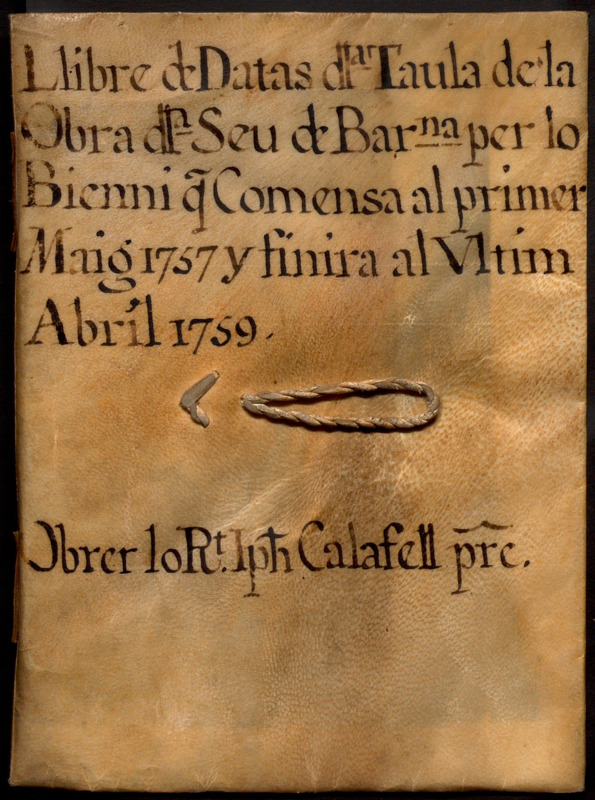 Llibre de Datas dlᵃʳ Taula de la
Obra dlᵃ Seu de Barⁿᵃ per lo
Bienni q̃ Comensa al primer
Maig 1757 y finira al Vltim
Abril 1759.
Obrer lo Rt. Iph Calafell pre͂.